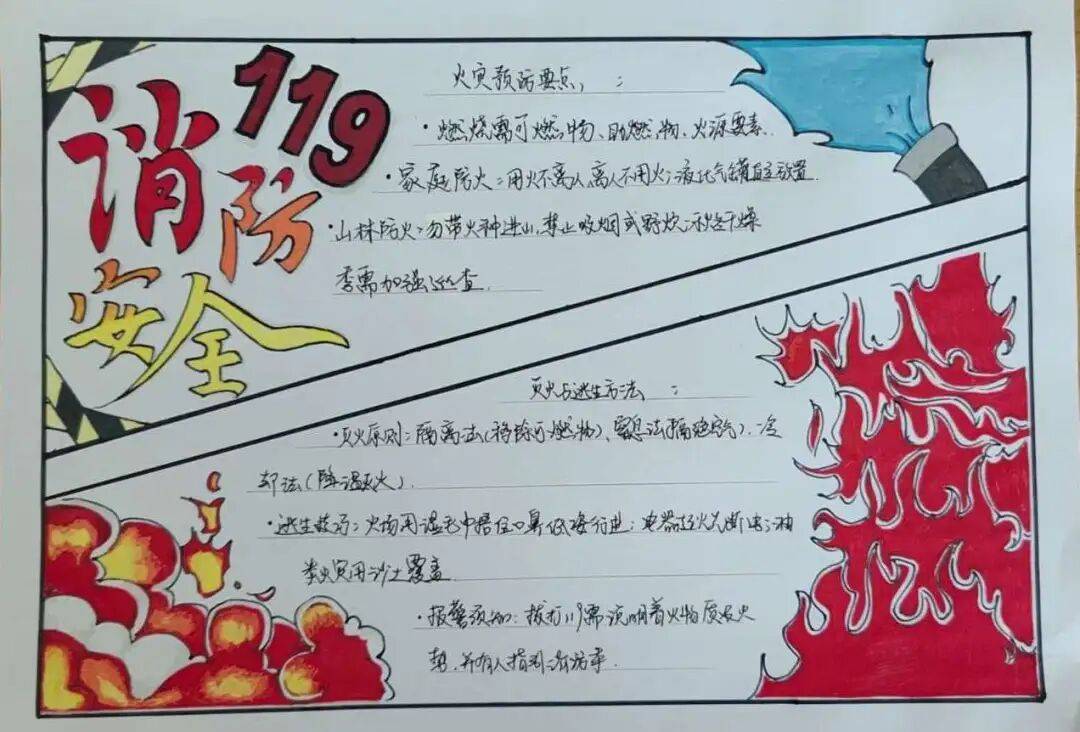 119
消防
安全
火灾预防要点：
·燃烧需可燃物、助燃物、火源要素.
·家庭防火：用火不离人，离人不用火；液化气罐直立放置.
·山林防火：勿带火种进山，禁止吸烟或野炊；秋冬干燥
季需加强巡查.
灭火与逃生方法：
·灭火原则：隔离法(移除可燃物)、窒息法(隔绝空气)、冷
却法(降温灭火).
·逃生技巧：火场用湿毛巾捂住口鼻低姿行进；电器起火先断电；油
类火灾用沙土覆盖
·报警须知：拨打119需说明着火物质及火
势，并有人指引消防车.